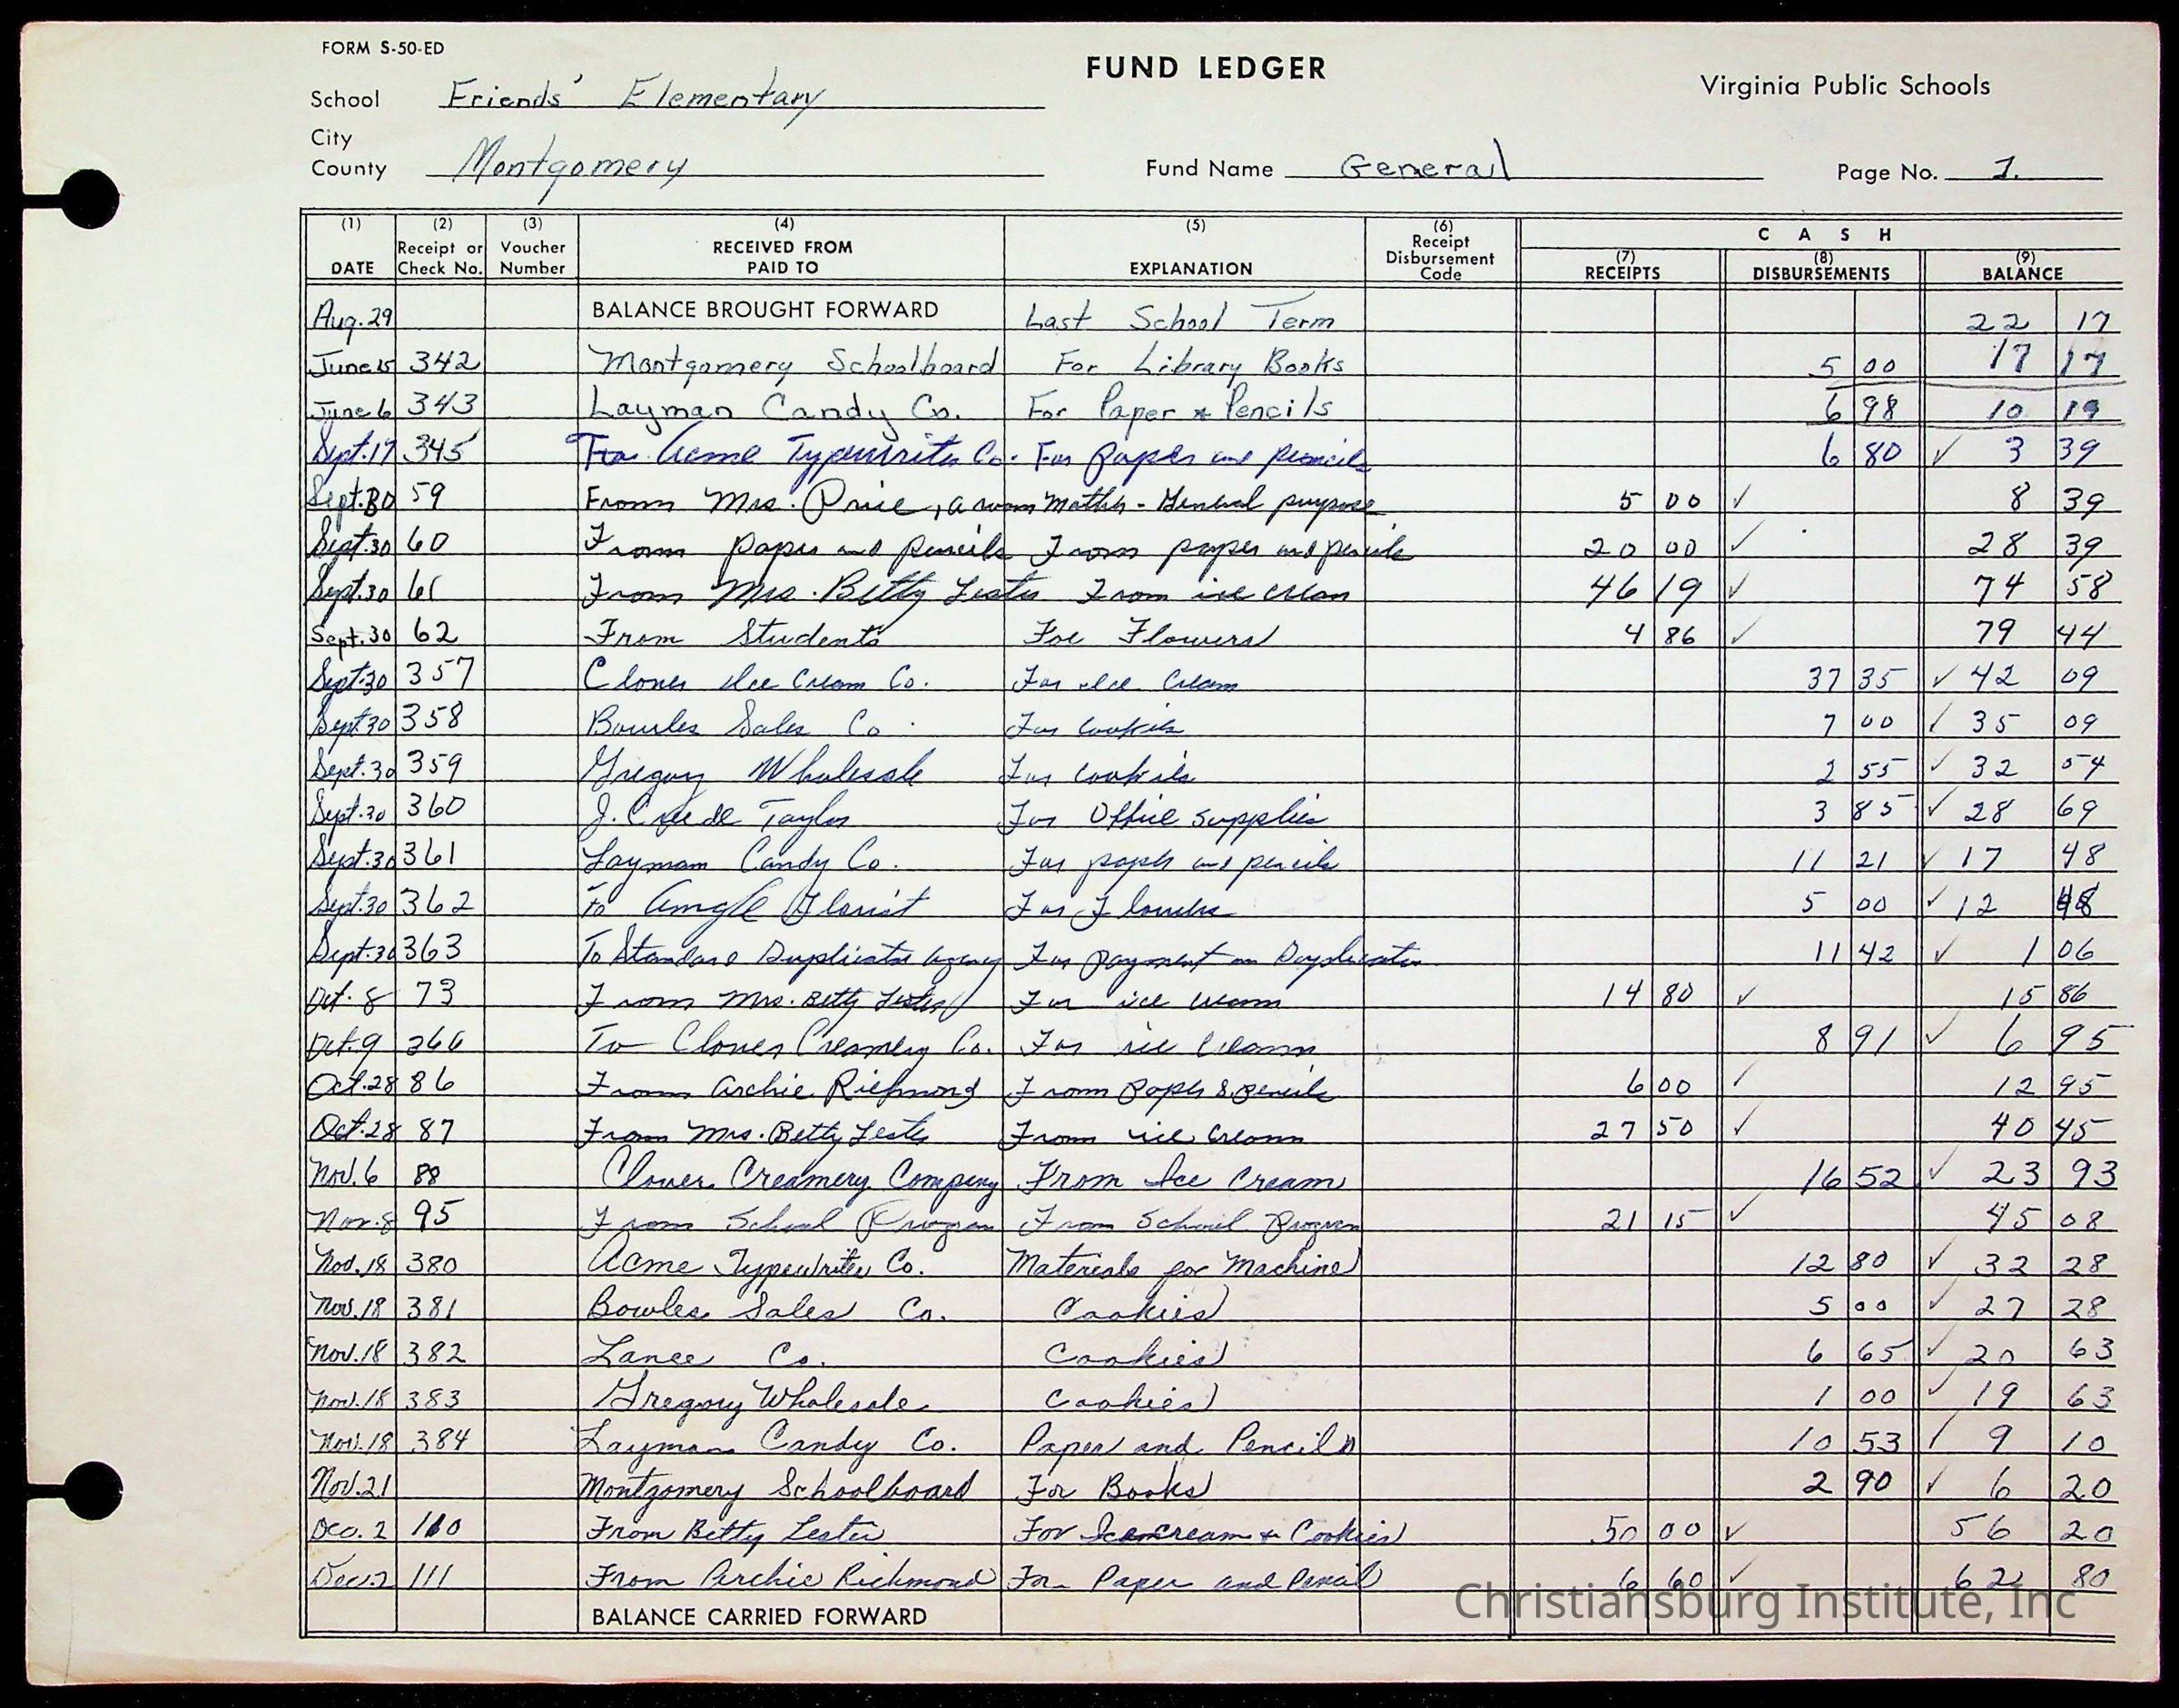 FORM S-50-ED
FUND LEDGER
Virginia Public Schools
School Friends' Elementary
City
County Montgomery Fund Name General Page No. 1.
(1) (2) (3) (4) (5) (6) C A S H
DATE Receipt or Check No. Voucher Number RECEIVED FROM PAID TO EXPLANATION Receipt Disbursement Code (7) RECEIPTS (8) DISBURSEMENTS (9) BALANCE
Aug. 29 BALANCE BROUGHT FORWARD Last School Term 22 17
June 15 342 Montgomery Schoolboard For Library Books 5 00 17 17
June 6 343 Layman Candy Co. For Paper & Pencils 6 98 10 19
Sept. 17 345 To Acme Typewriter Co. For paper and pencils 6 80 ✓ 3 39
Sept. 30 59 From Mrs. Price, a room Mother - General purpose 5 00 ✓ 8 39
Sept. 30 60 From paper and pencils From paper and pencils 20 00 ✓ 28 39
Sept. 30 61 From Mrs. Betty Lester From ice cream 46 19 ✓ 74 58
Sept. 30 62 From Students For Flowers 4 86 ✓ 79 44
Sept. 30 357 Clover Ice Cream Co. For Ice Cream 37 35 ✓ 42 09
Sept. 30 358 Bowles Sales Co. For Cookies 7 00 ✓ 35 09
Sept. 30 359 Gregory Wholesale For Cookies 2 55 ✓ 32 54
Sept. 30 360 J. Creede Taylor For Office supplies 3 85 ✓ 28 69
Sept. 30 361 Layman Candy Co. For paper and pencils 11 21 ✓ 17 48
Sept. 30 362 To Angle Florist For Flowers 5 00 ✓ 12 48
Sept. 30 363 To Standard Duplicator Agency For payment on Duplicator 11 42 ✓ 1 06
Oct. 8 73 From Mrs. Betty Lester For ice cream 14 80 ✓ 15 86
Oct. 9 366 To Clover Creamery Co. For ice cream 8 91 ✓ 6 95
Oct. 28 86 From Archie Richmond From paper & pencils 6 00 ✓ 12 95
Oct. 28 87 From Mrs. Betty Lester From ice cream 27 50 ✓ 40 45
Nov. 6 88 Clover Creamery Company From Ice Cream 16 52 ✓ 23 93
Nov. 8 95 From School Program From School Program 21 15 ✓ 45 08
Nov. 18 380 Acme Typewriter Co. Materials for Machine 12 80 ✓ 32 28
Nov. 18 381 Bowles Sales Co. Cookies 5 00 ✓ 27 28
Nov. 18 382 Lance Co. Cookies 6 65 ✓ 20 63
Nov. 18 383 Gregory Wholesale Cookies 1 00 ✓ 19 63
Nov. 18 384 Layman Candy Co. Paper and Pencils 10 53 ✓ 9 10
Nov. 21 Montgomery Schoolboard For Books 2 90 ✓ 6 20
Dec. 2 110 From Betty Lester For Icecream & Cookies 50 00 ✓ 56 20
Dec. 2 111 From Archie Richmond For Paper and Pencil 6 60 ✓ 62 80
BALANCE CARRIED FORWARD
Christiansburg Institute, Inc